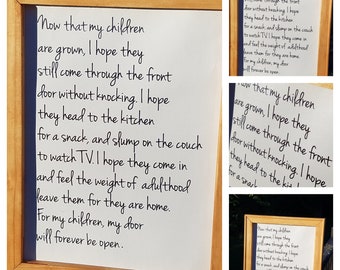 Now that my children
are grown, I hope they
still come through the front
door without knocking. I hope
they head to the kitchen
for a snack, and slump on the couch
to watch TV. I hope they come in
and feel the weight of adulthood
leave them for they are home.
For my children, my door
will forever be open..
come through the front
door without knocking. I hope
they head to the kitchen
for a snack, and slump on the couch
to watch TV. I hope they come in
and feel the weight of adulthood
leave them for they are home.
For my children, my door
will forever be open..
Now that my children
are grown, I hope they
still come through the front
door without knocking. I hope
they head to the kitchen
for a snack, and
Now that my children
are grown, I hope they
still come through the front
door without knocking. I hope
they head to the kitchen
for a snack, and slump on the couch